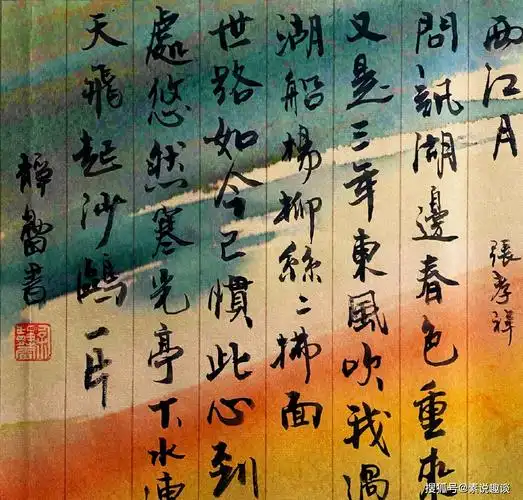 西江月 張孝祥
問訊湖邊春色重來
又是三年東風吹我過
湖船楊柳絲〻拂面
世路如今已慣此心到
處悠然寒光亭下水連
天飛起沙鷗一片
書
搜狐号@素说趣谈